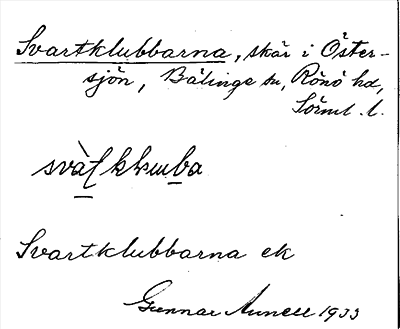 Svartklubbarna, skär i Öster-
sjön, Bälinge sn, Rönö hd,
Sörml. l.
Svartklubbarna ek
Gunnar Annell 1933